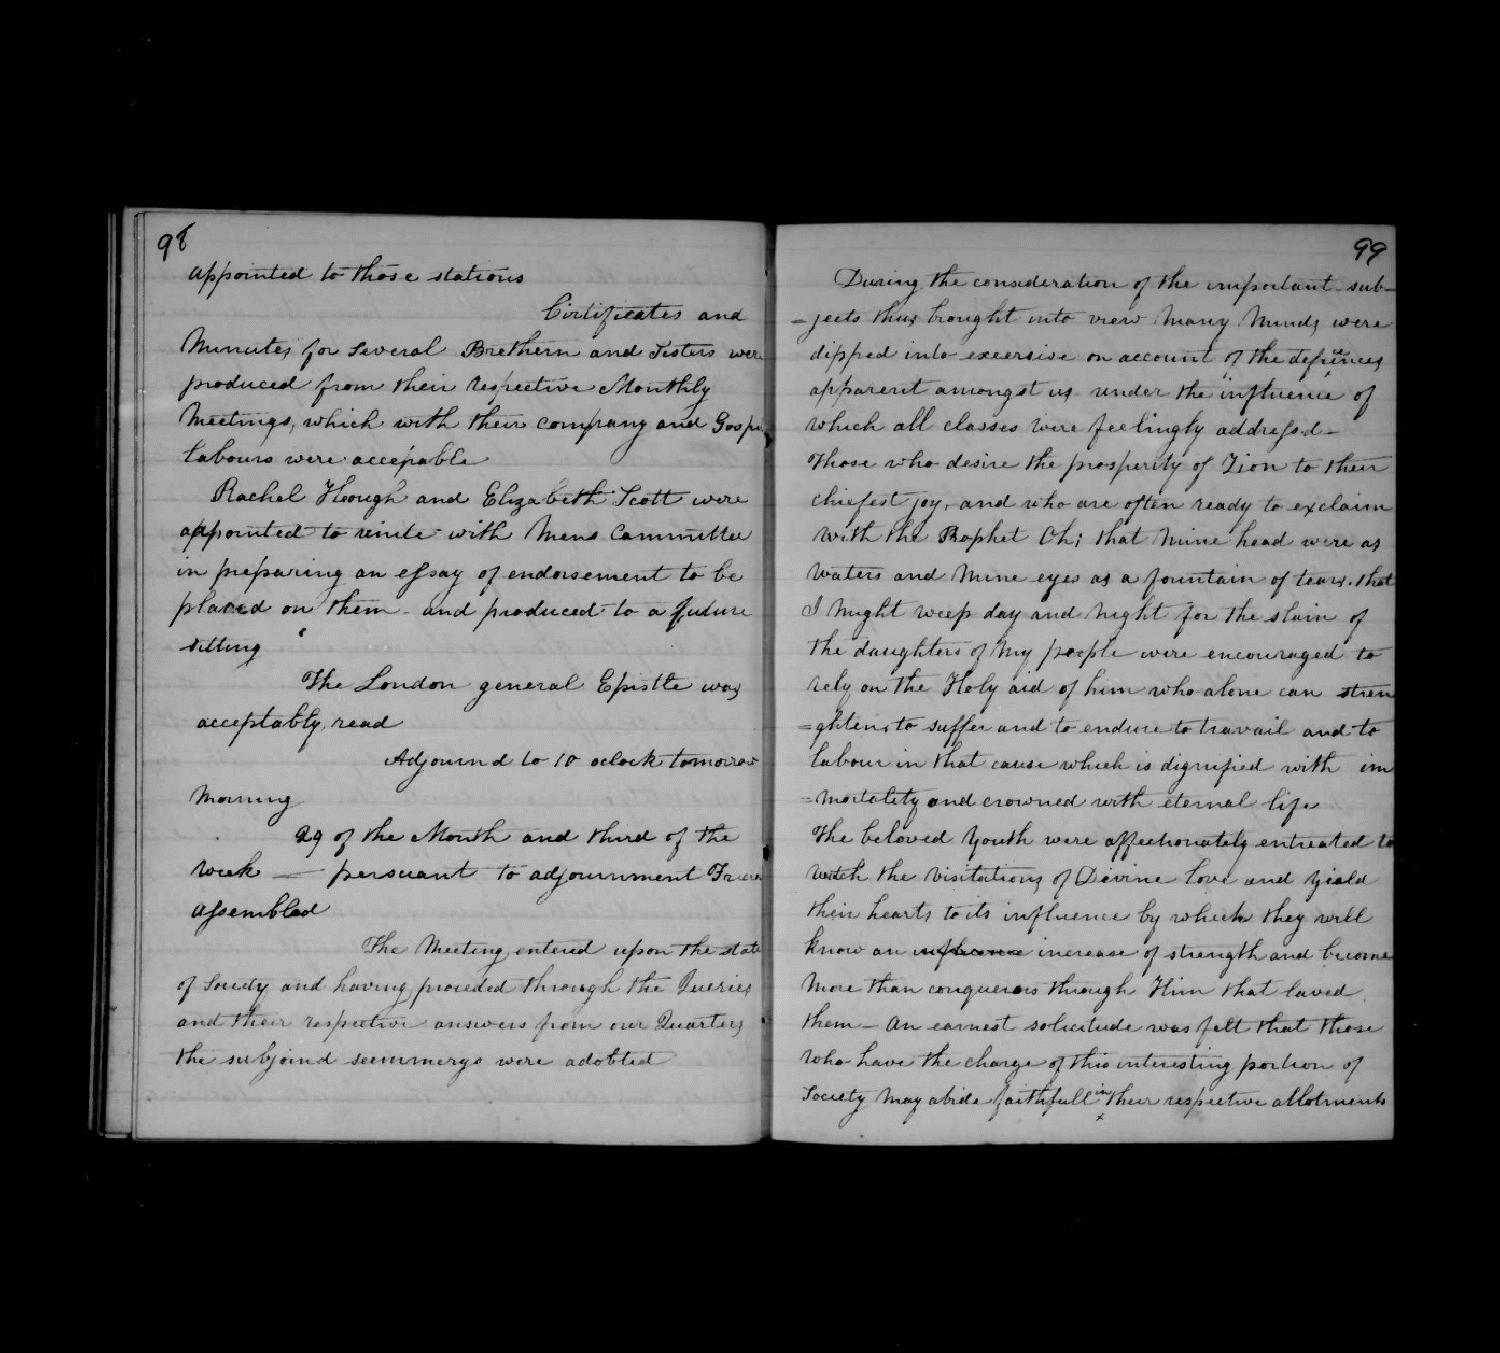 98
appointed to those stations
Cirtificates and
Minutes for several Brethern and Sisters were
produced from their respective Monthly
Meetings, which with their company and Gospe
labours were accepable
Rachel Hough and Elizabeth Scott were
appointed to unite with Mens Committee
in preparing an essay of endorsement to be
placed on them - and produced to a future
sitting
The London general Epistle was
acceptably read
Adjournd to 10 oclock tomorrow
Morning
29 of the Month and third of the
week — persuant to adjournment
assembled
The Meeting entered upon the state
of Society and having proceded through the Queries
and their respective answers from our Quarters
the subjoind summerys were adobted
99
During the consideration of the important sub-
-jects thus brought into view many Minds were
dipped into excersise on account of the
apparent amongst us under the influence of
which all classes were feelingly addressd -
Those who desire the prosperity of Zion to their
chiefest joy, and who are often ready to exclaim
with the Prophet Oh; that Mine head were as
waters and Mine eyes as a fountain of tears. that
I Might weep day and Night for the slain of
the daughters of My people were encouraged to
rely on the Holy aid of him who alone can stren
=ghten, to suffer and to endure to travail and to
labour in that cause which is dignified with im
=mortality and crowned with eternal life
The beloved Youth were affectionately entreated to
watch the Visitations of Divine love and Yield
their hearts to its influence by which they will
know an influence increase of strength and become
More than conquerors through Him that loved
them — An earnest solicitude was felt that those
who have the charge of this interesting portion of
Society May abide faithfull in their respective allotments